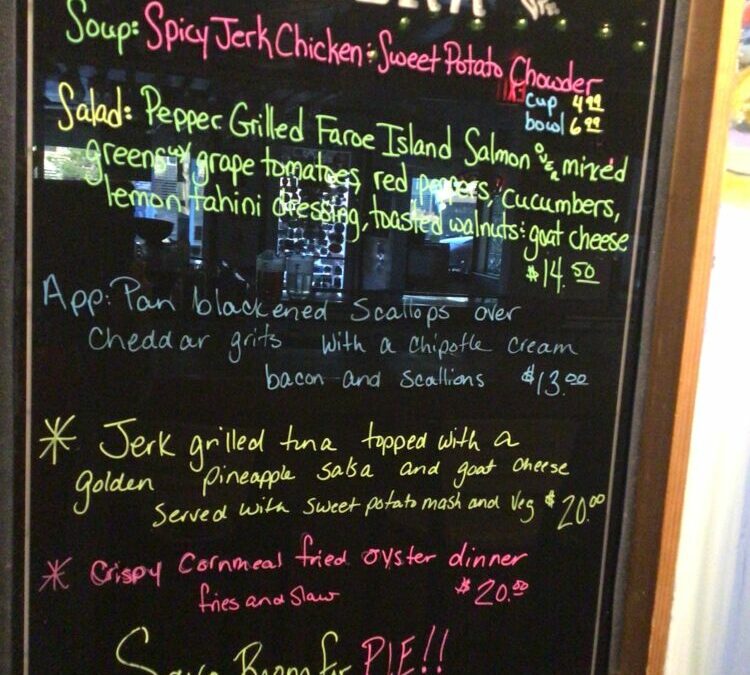 Soup: Spicy Jerk Chicken : Sweet Potato Chowder
cup 4.99
bowl 6.99
Salad: Pepper Grilled Faroe Island Salmon over mixed
greens w/ grape tomatoes, red peppers, cucumbers,
lemon tahini dressing, toasted walnuts : goat cheese
$14.50
App: Pan blackened Scallops over
Cheddar grits with a chipotle cream
bacon and scallions $13.00
* Jerk grilled tuna topped with a
golden pineapple salsa and goat cheese
Served with sweet potato mash and veg $20.00
* Crispy Cornmeal fried oyster dinner
fries and slaw $20.00
Save Room for PIE!!